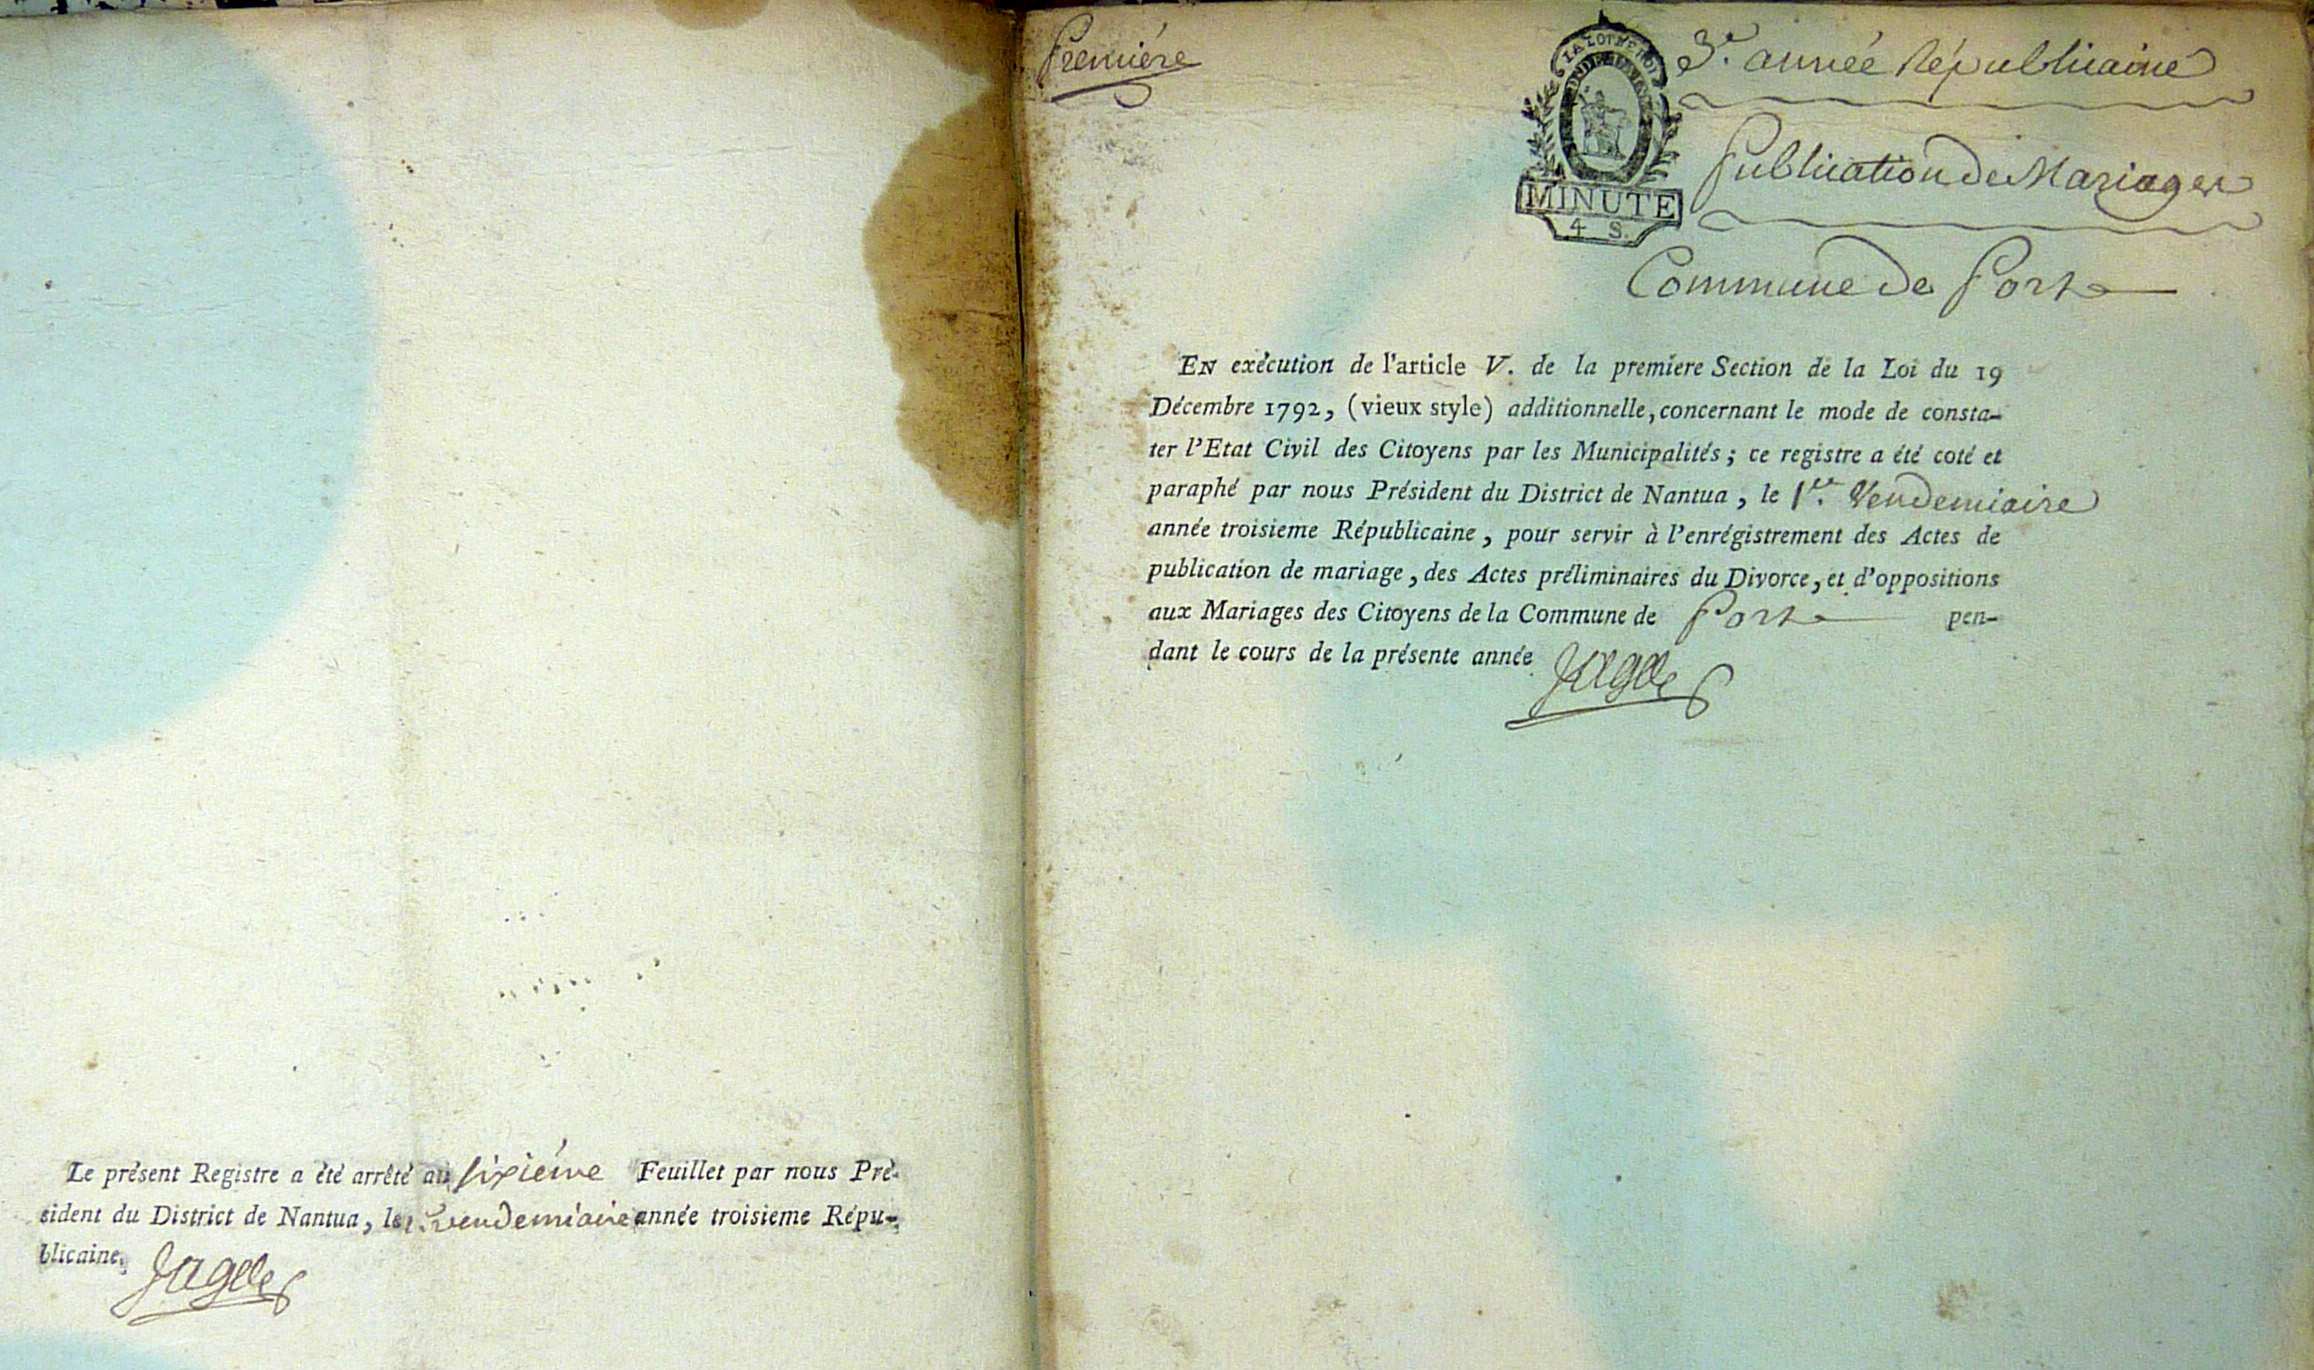 Le présent Registre a été arrêté au sixiéme Feuillet par nous Pré-
sident du District de Nantua, le 1.er vendemiaire année troisieme Répu-
blicaine.
Premiére
3.e année Républicaine
Publication de Mariages
MINUTE
4 S.
Commune de Port
EN exécution de l'article V. de la premiere Section de la Loi du 19
Décembre 1792, (vieux style) additionnelle, concernant le mode de consta-
ter l'Etat Civil des Citoyens par les Municipalités; ce registre a été coté et
paraphé par nous Président du District de Nantua, le 1.er Vendemiaire
année troisieme Républicaine, pour servir à l'enrégistrement des Actes de
publication de mariage, des Actes préliminaires du Divorce, et d'oppositions
aux Mariages des Citoyens de la Commune de Port pen-
dant le cours de la présente année